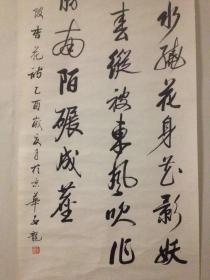 水繞花身花影妖
春縱被東風吹作
勝南陌碾成塵
陂杏花詩乙酉歲夏月於京華